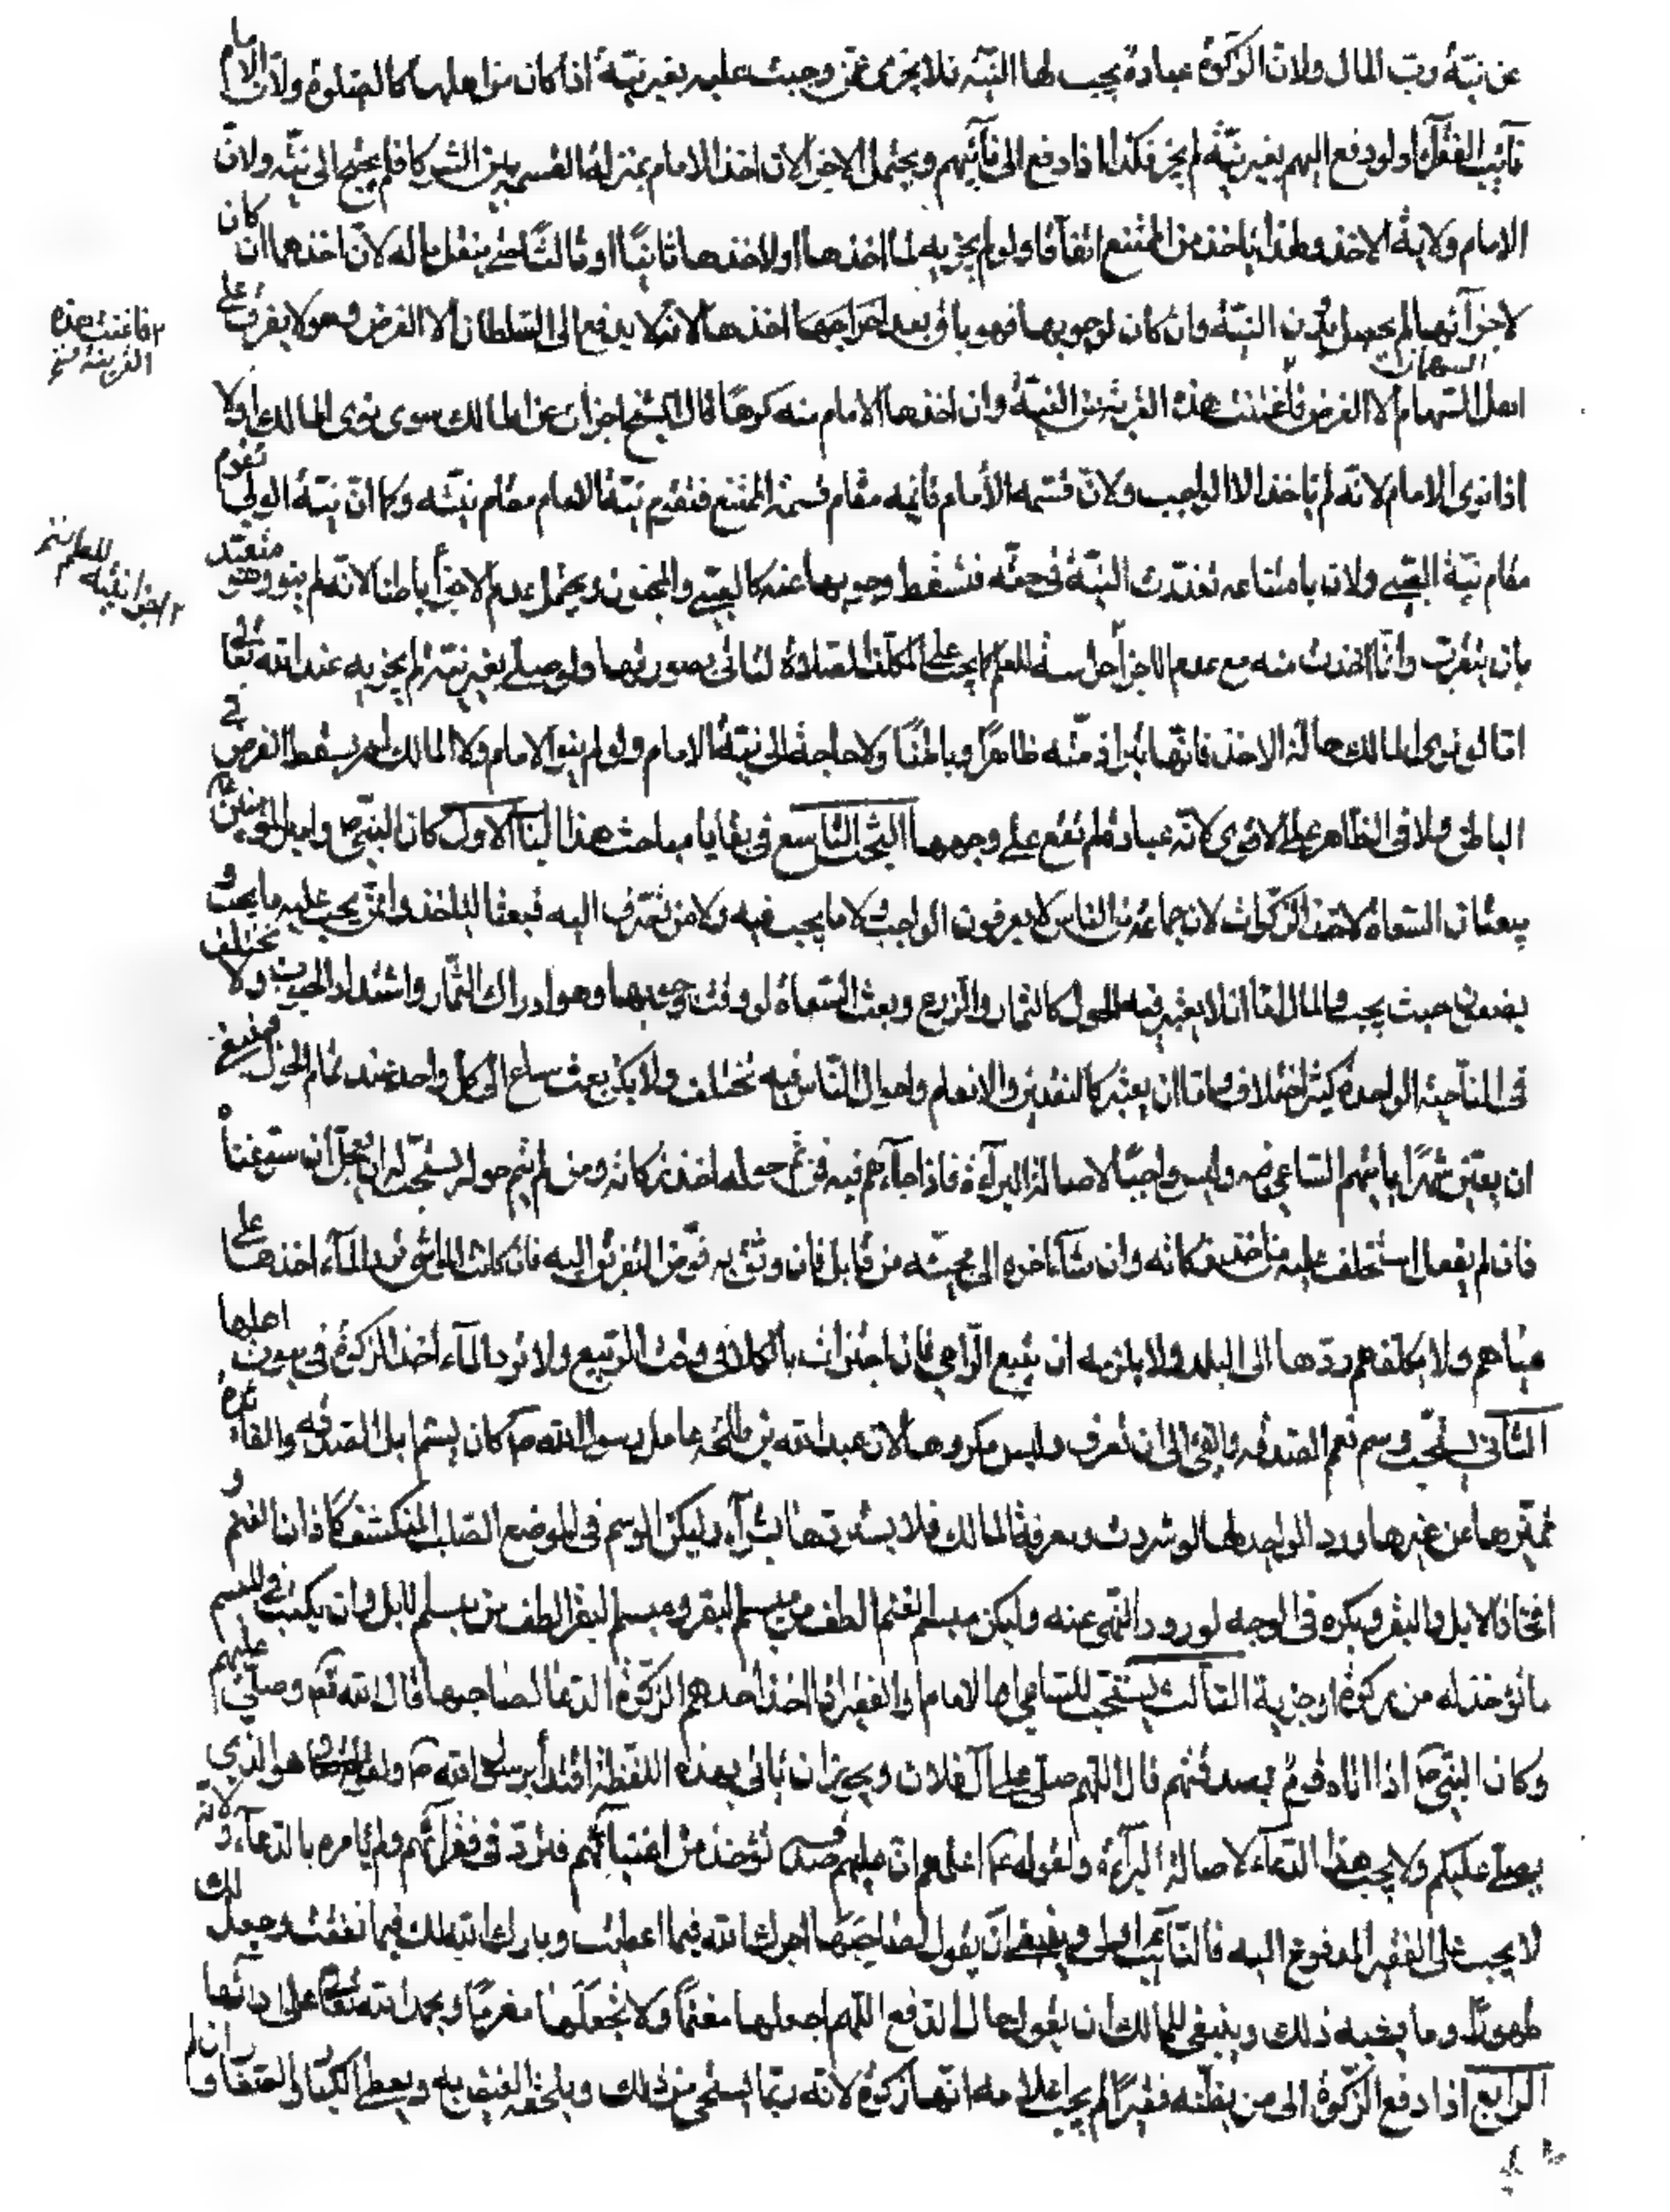 عن نيّة ربّ المال ولانّ الزكوة عبادة يجب لها النيّة فلا يجزى عمّن وجبت عليه بغير نيّة اذا كان من اهلها كالصّلوة ولانّ الامام
نآئب الفقرآء ولو دفع اليهم بغير نيّة لم يجز فكذا اذا دفع الى نآئبهم ويحتمل الاجزاء لانّ اخذ الامام بمنزلة القسمة بين الشركا فلم يحتج الى نيّة ولانّ
للامام ولاية الاخذ ولهذا ياخذ من الممتنع اتفاقا ولو لم يجزيه لما اخذها او لاخذها ثانيًا او ثالثًا حتّى ينفد ماله لانّ اخذها ان كان
لاجزآئها لم يحصل بدون النيّة وان كان لوجوبها فهو باق بعد اخراجها اخذها لانّه لا يدفع الى السّلطان الا الفرض وهو لا يفرق على
اهل السهام الا الفرض فاغنت هذه القرينة عن النيّة وان اخذها الامام منه كرهًا قال الشيخ اجزات عن المالك سوى نوى المالك او لا
اذا نوى الامام لانّه لم ياخذ الا الواجب ولانّ قسمة الأمام قائمه مقام قسمة الممتنع فتقوم نيّة الامام مقام نيّته وكما انّ نيّة الولى تقوم
مقام نيّة الصّبى ولانّ بامتناعه تعذّرت النيّة فى حقّه فتسقط وجوبها عنه كالصّبى والمجنون ويحتمل عدم الاجزاء باطنا لانّه لم ينو وهو متعبّد
بان يتقرب وانّما اخذت منه مع عدم الاجزاء حراسة للعلم كما يجب على المكلف الصّلاة لياتى بصورتها ولو صلّى بغير نيّة لم يجزيه عند الله تعالى
امّا لو نوى المالك حالة الاخذ فانّها تبراء ذمّته ظاهرًا وباطنًا ولا حاجة الى نيّة الامام ولو لم ينو الامام ولا المالك لم يسقط الفرض فى
الباطن ولا فى الظاهر على الاقوى لانّه عبادة لم تقع على وجهها البحث التاسع فى بقايا مباحث هذا الباب الاول كان النبىّ ص وامير المؤمنين ع
يبعثان السّعاة لاخذ الزّكوات لانّ جماعة من الناس لا يعرفون الواجب ولا ما يجب فيه ولا من تصرف اليه فبعثا لياخذوا ممّن يجب عليه ما يجب و
يضعونه حيث يجب والمال امّا ان لا يعتبر فيه الحول كالثمار والزرع وبعث السّعاة لوقت وجوبها وهو ادراك الثّمار واشتداد الحبوب ولا تختلف
فى النّاحية الواحدة كثير اختلاف وامّا ان يعتبر كالنقدين والانعام واحوال النّاس فيه تختلف ولا يمكن بعث ساع الى كل واحد عند تمام الحول فينبغى
ان يعيّن شهرًا ياتيهم السّاعى فيه وليس واجبًا لاصالة البرآءة فاذا جآءهم فيه فمن تمّ حوله اخذ زكاته ومن لم يتم حوله يستحبّ له ان يعجّل ان استوغناه
فان لم يفعل استخلف عليه من ياخذ زكاته وان شآء اخره الى مجيئه من قابل فان وثق به فوّض التفريق اليه فان كانت المواشى ترد المآء اخذها على
مياههم ولا يكلفهم ردّها الى البلد ولا يلزمه ان يتبع الرّاعى فان اجتزات بالكلاء فى وقت الربيع ولا ترد المآء اخذ الزكوة فى بيوت اهلها
الثآنى يستحبّ وسم نعم الصّدقه والفئ الى ان تعرف وليس مكروها لانّ عبدالله بن طلحه عامل رسول الله ص كان يسم ابل الصّدقه والفائدة
تميّزها عن غيرها ورد الواجد لها لو شردت ومعرفة المالك فلا يستردّها بشرآء وليكن الوسم فى الموضع الصّلب المنكشف كاذان الغنم و
افخاذ الابل والبقر ويكره فى الوجه لورود النّهى عنه وليكن ميسم الغنم الطف من ميسم البقر وميسم البقر الطف من ميسم الابل وان يكتب فى الميسم
ما تؤخذ له من زكوة او جزية الثآلث يستحبّ للسّاعى او الامام او الفقير اذا اخذ احدهم الزكوة الدّعا لصاحبها قال الله تع وصلّ عليهم
وكان النبىّ ص اذا اتاه قوم بصدقتهم قال اللّهم صلّ على آل فلان ويجوز ان ياتى بهذه اللفظة اقتدأ برسول الله ص ولقوله تعالى هو الذى
يصلى عليكم ولا يجب هذا الدّعاء لاصالة البرآءة ولقوله ع اعلمهم انّ عليهم صدقة تؤخذ من اغنيآئهم فتردّ فى فقرآئهم ولم يامره بالدّعآء ولانّه
لا يجب على الفقير المدفوع اليه فالنّائب اولى وينبغى ان يقول لصاحبها اجرك الله فيما اعطيت وبارك الله لك فيما نفقت وجعل لك
طهورًا وما يشبه ذلك وينبغى للمالك ان يقول حال الدّفع اللّهم اجعلها مغنمًا ولا تجعلها مغرمًا ويحمد الله تعالى على ادآئها
الرابع اذا دفع الزّكوة الى من يظنّه فقيرًا لم يجب اعلامه انّها زكوة لانّه ربّما استحى من ذلك ويعطى الكبار والصغار وان لم
فاغنت هذه
القرينة صح